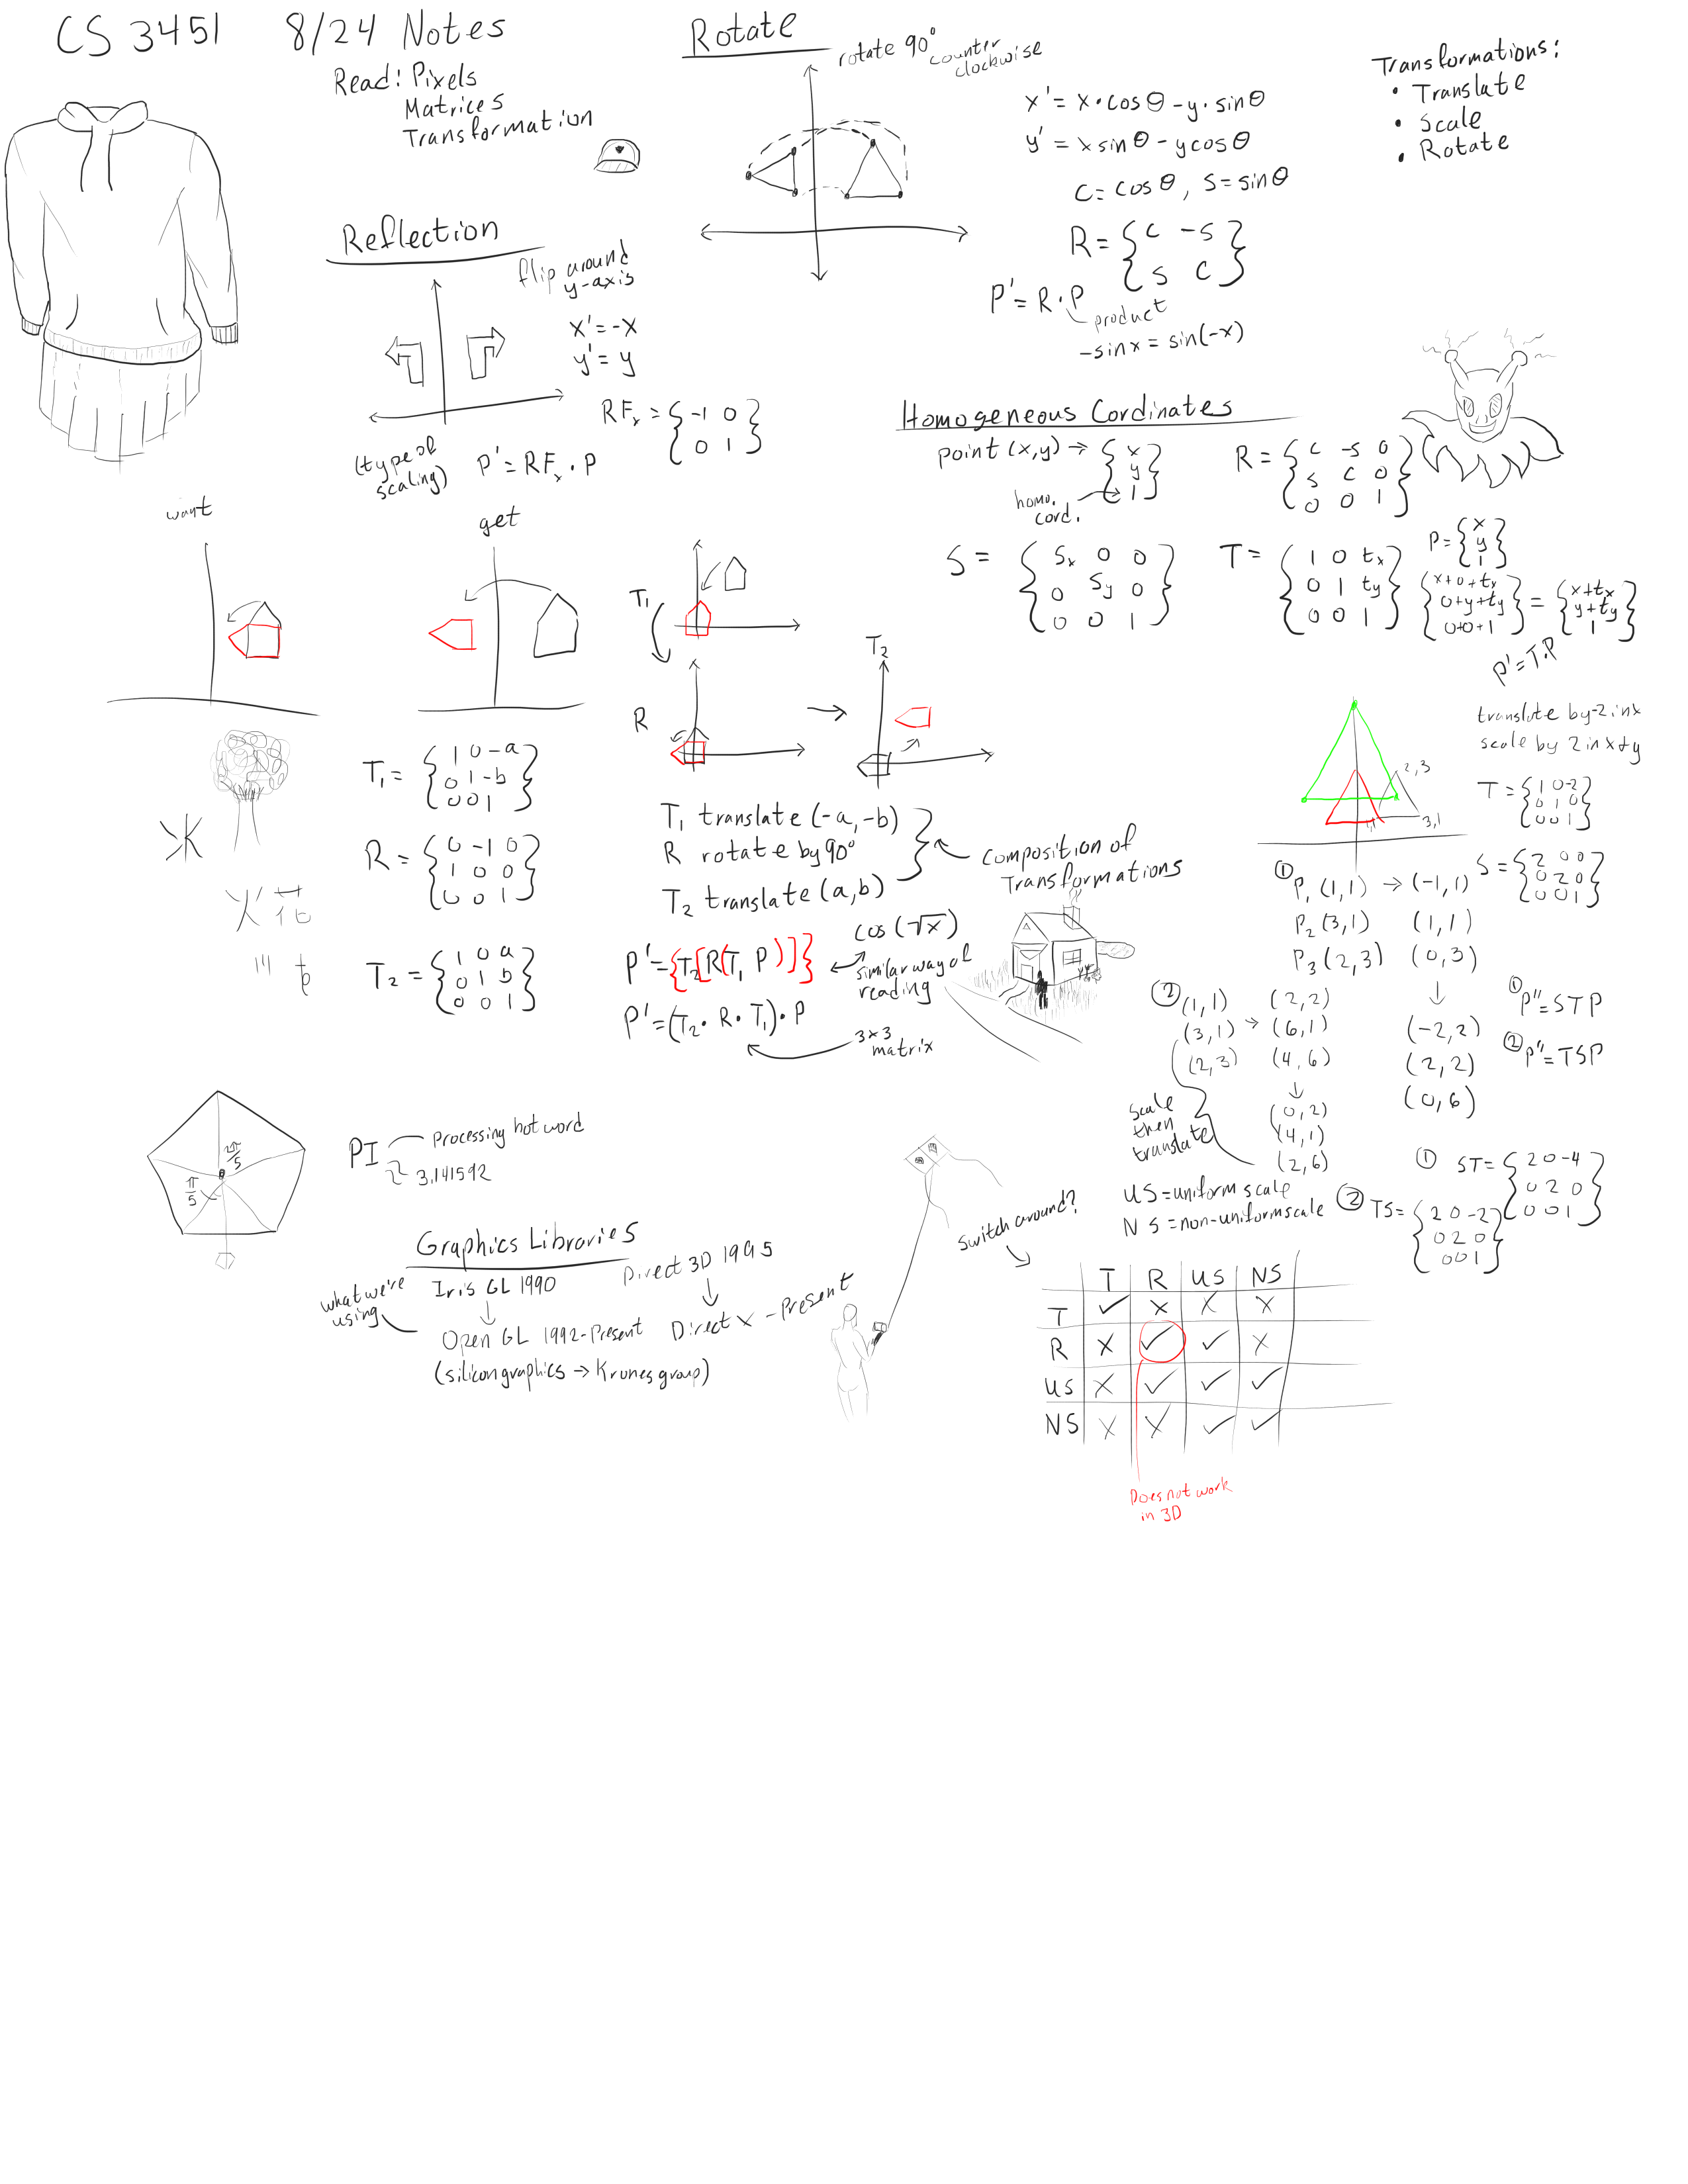 CS 3451 8/24 Notes
Read: Pixels
Matrices
Transformation
Rotate
rotate 90°
counter
clockwise
x' = x·cosθ - y·sinθ
y' = x sinθ - y cosθ
C = cosθ, S = sinθ
R = { C -S
S C }
P' = R·P
product
-sinx = sin(-x)
Transformations:
• Translate
• Scale
• Rotate
Reflection
flip around
y-axis
x' = -x
y' = y
RFₓ = { -1 0
0 1 }
(type of
scaling)
P' = RFₓ·P
Homogeneous Cordinates
point (x,y) → { x
y
1 }
homo.
cord.
R = { C -S 0
S C 0
0 0 1 }
S = { Sx 0 0
0 Sy 0
0 0 1 }
T = { 1 0 tx
0 1 ty
0 0 1 }
P = { x
y
1 }
{ x+0+tx
0+y+ty
0+0+1 } = { x+tx
y+ty
1 }
P' = T·P
want
get
T₁
R
T₂
T₁ = { 1 0 -a
0 1 -b
0 0 1 }
R = { 0 -1 0
1 0 0
0 0 1 }
T₂ = { 1 0 a
0 1 b
0 0 1 }
T₁ translate (-a,-b)
R rotate by 90°
T₂ translate (a,b)
Composition of
Transformations
P' = {T₂[R(T₁ P)]}
cos(√x)
similar way of
reading
P' = (T₂·R·T₁)·P
3×3
matrix
火花
translate by -2 in x
scale by 2 in x+y
2,3
1,1
3,1
T = { 1 0 -2
0 1 0
0 0 1 }
S = { 2 0 0
0 2 0
0 0 1 }
① P₁ (1,1) → (-1,1)
P₂ (3,1) (1,1)
P₃ (2,3) (0,3)
↓
(-2,2)
(2,2)
(0,6)
① P'' = STP
② P'' = TSP
② (1,1) (2,2)
(3,1) → (6,1)
(2,3) (4,6)
↓
(0,2)
(4,1)
(2,6)
scale
then
translate
① ST = { 2 0 -4
0 2 0
0 0 1 }
② TS = { 2 0 -2
0 2 0
0 0 1 }
US = uniform scale
NS = non-uniform scale
2π/5
π/5
PI
Processing hot word
≈ 3.141592
Graphics Libraries
what we're
using
Iris GL 1990
↓
Open GL 1992-Present
(silicon graphics → Krones group)
Direct 3D 1995
↓
Direct X - Present
Switch around?
T R US NS
T ✓ x x x
R x ✓ ✓ x
US x ✓ ✓ ✓
NS x x ✓ ✓
Does not work
in 3D